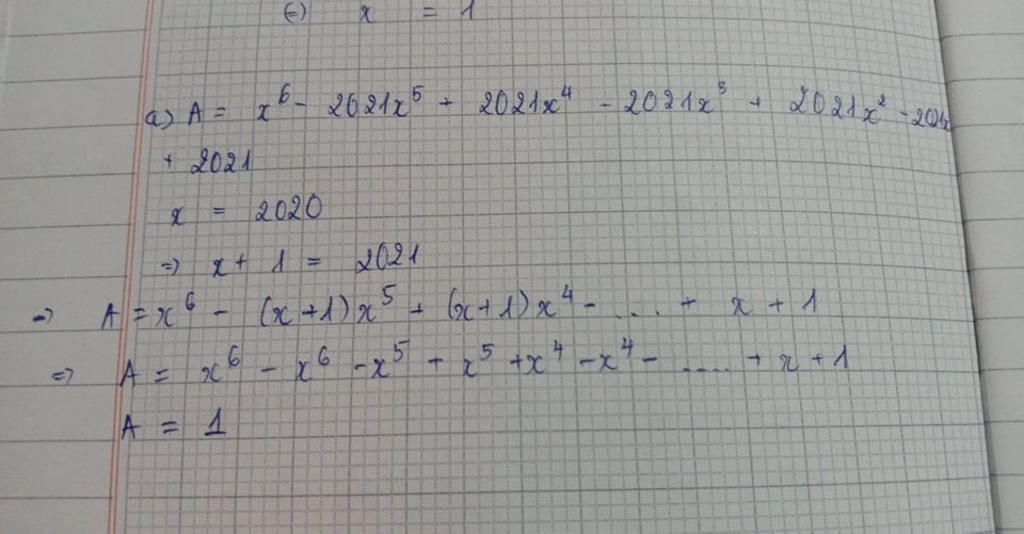 (=) x = 1
a) A = x⁶ - 2021x⁵ + 2021x⁴ - 2021x³ + 2021x² - 2021x
+ 2021
x = 2020
=> x + 1 = 2021
=> A = x⁶ - (x+1)x⁵ + (x+1)x⁴ - .... + x + 1
=> A = x⁶ - x⁶ - x⁵ + x⁵ + x⁴ - x⁴ - ..... + x + 1
A = 1